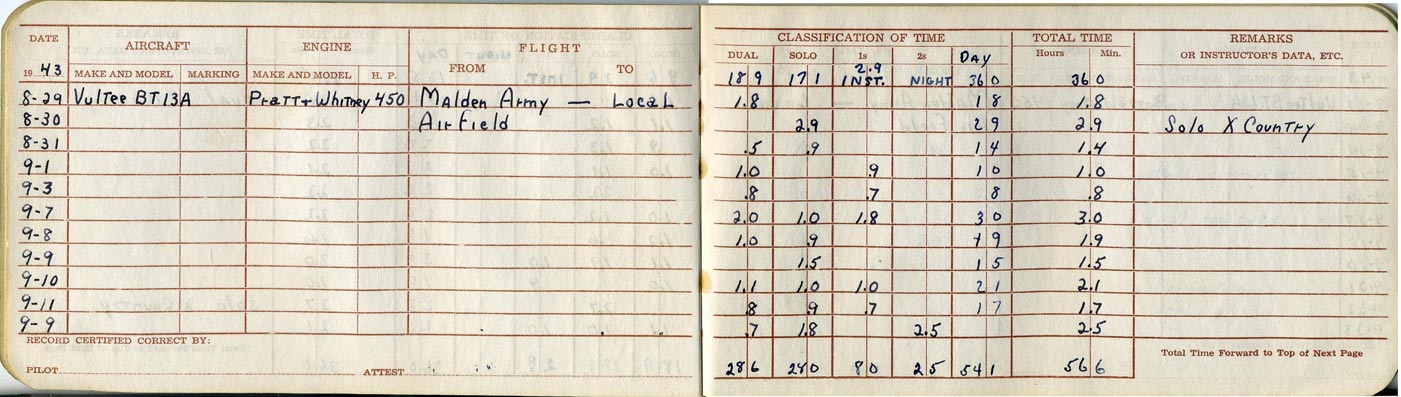 DATE AIRCRAFT ENGINE FLIGHT CLASSIFICATION OF TIME TOTAL TIME REMARKS
FROM TO DUAL SOLO 1s 2s DAY Hours Min. OR INSTRUCTOR'S DATA, ETC.
1943 MAKE AND MODEL MARKING MAKE AND MODEL H. P. 18 9 17 1 2.9 INST. NIGHT 36 0 36 0
8-29 Vultee BT13A Pratt + Whitney 450 Malden Army — Local 1.8 1 8 1.8
8-30 Airfield 2.9 2 9 2.9 Solo X Country
8-31 .5 .9 1 4 1.4
9-1 1.0 .9 1 0 1.0
9-3 .8 .7 8 .8
9-7 2.0 1.0 1.8 3 0 3.0
9-8 1.0 .9 1 9 1.9
9-9 1.5 1 5 1.5
9-10 1.1 1.0 1.0 2 1 2.1
9-11 .8 .9 .7 1 7 1.7
9-9 .7 1.8 2.5 2.5
RECORD CERTIFIED CORRECT BY: Total Time Forward to Top of Next Page
PILOT ATTEST 28 6 28 0 8 0 2 5 54 1 56 6